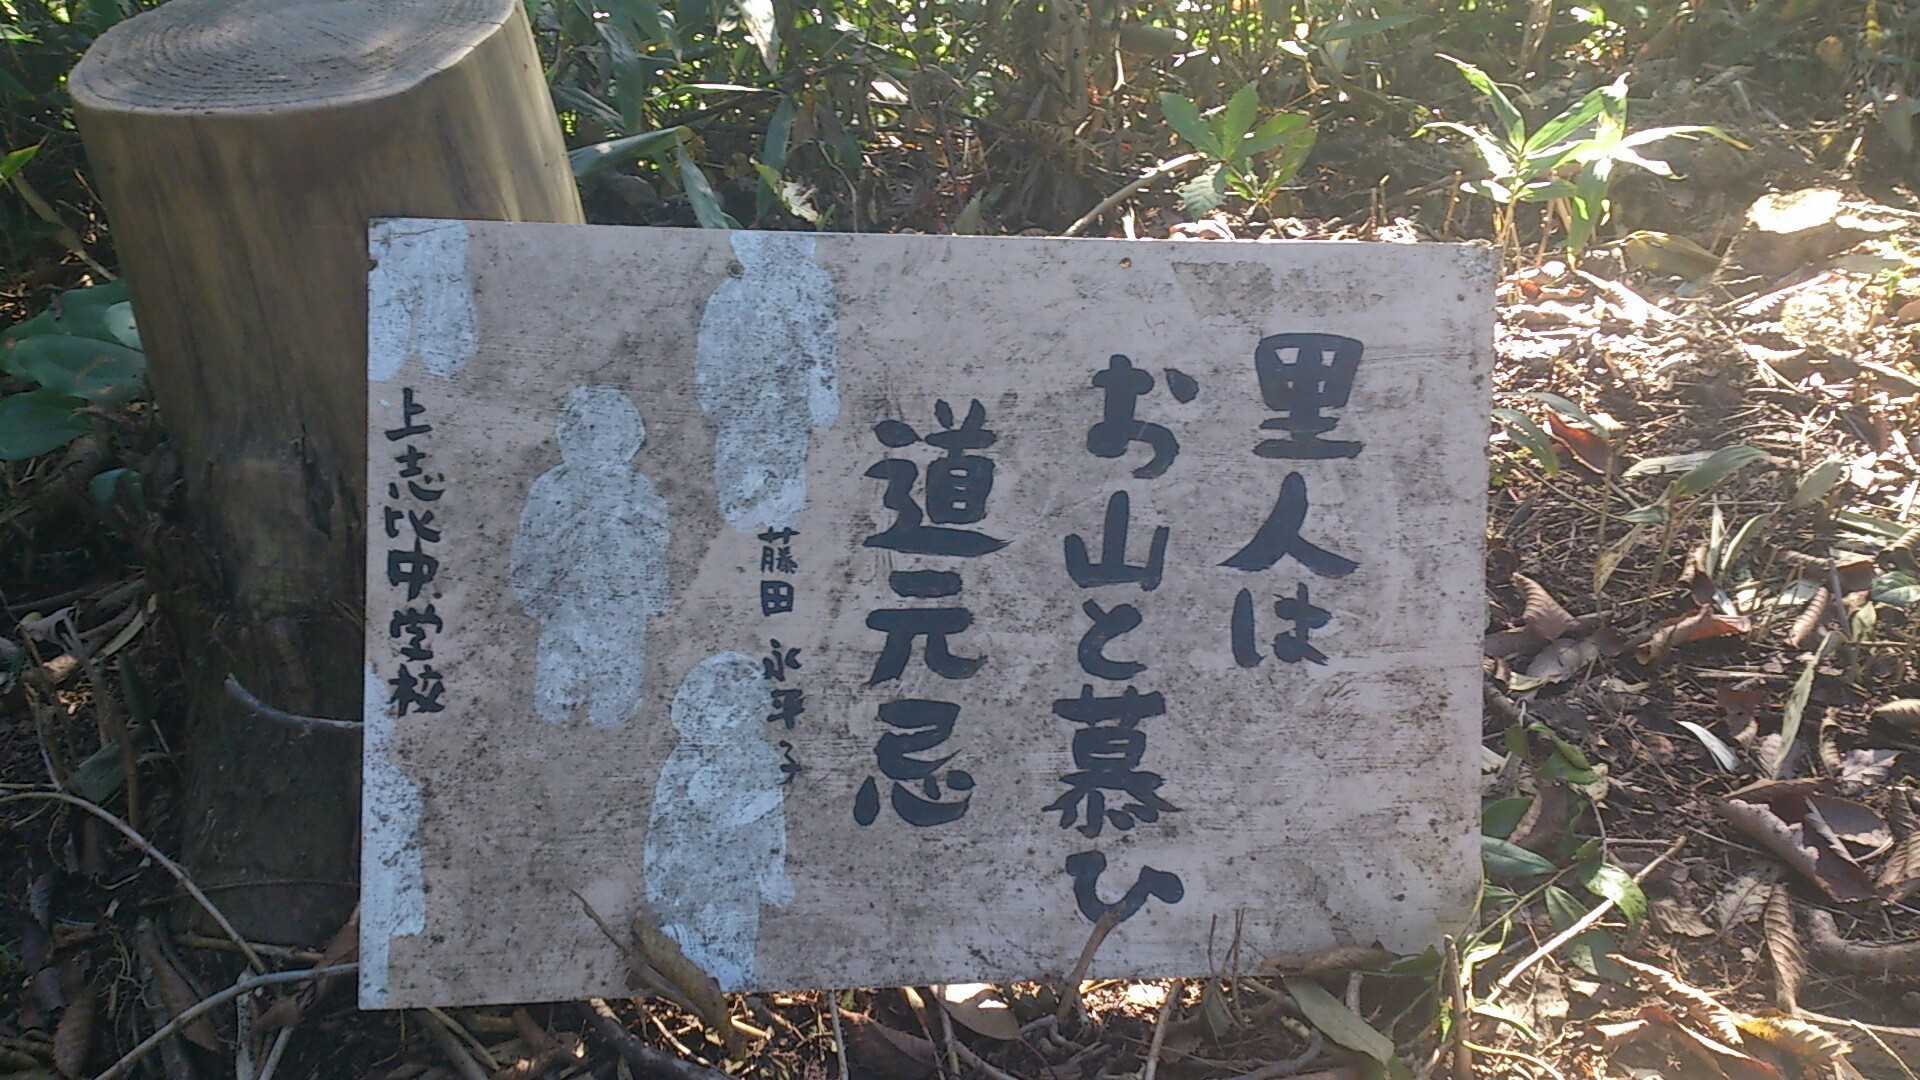 里人は
お山と慕ひ
道元忌
藤田 永平子
上志比中学校